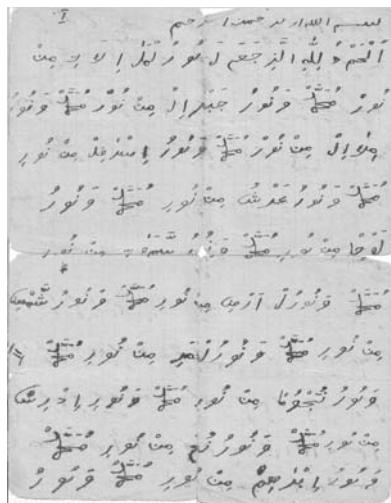 بسم الله الرحمن الرحيم
اَلْحَمْدُ لِلّٰهِ الَّذِ جَعَلَ نُورُ مِنْ
نُورُ مُحَمَّدْ وَنُورُ جَبْرَاِلْ مِنْ نُورُ مُحَمَّدْ وَنُورُ
مِكَاِلْ مِنْ نُورْ مُحَمَّدْ وَنُورُ اِسْرَفِلْ مِنْ نُورِ
مُحَمَّدْ وَنُورُ عَرْشُ مِنْ نُورِ مُحَمَّدْ وَنُورُ
مِنْ نُورِ مُحَمَّدْ وَنُورُ مِنْ نُورِ
مُحَمَّدْ وَنُورُلْ اَرْضِ مِنْ نُورِ مُحَمَّدْ وَنُورُ شَّمْسِ
مِنْ نُورِ مُحَمَّدْ وَنُورُلْقَمَرِ مِنْ نُورِ مُحَمَّدْ
وَنُورُ نُّجُومُ مِنْ نُورِ مُحَمَّدْ وَنُورِ اِدْرِسْ
مِنْ نُورِ مُحَمَّدْ وَنُورُ نُحِ مِنْ نُورِ مُحَمَّدْ
وَنُورُ اِبْرَهِمْ مِنْ نُورِ مُحَمَّدْ وَنُورُ